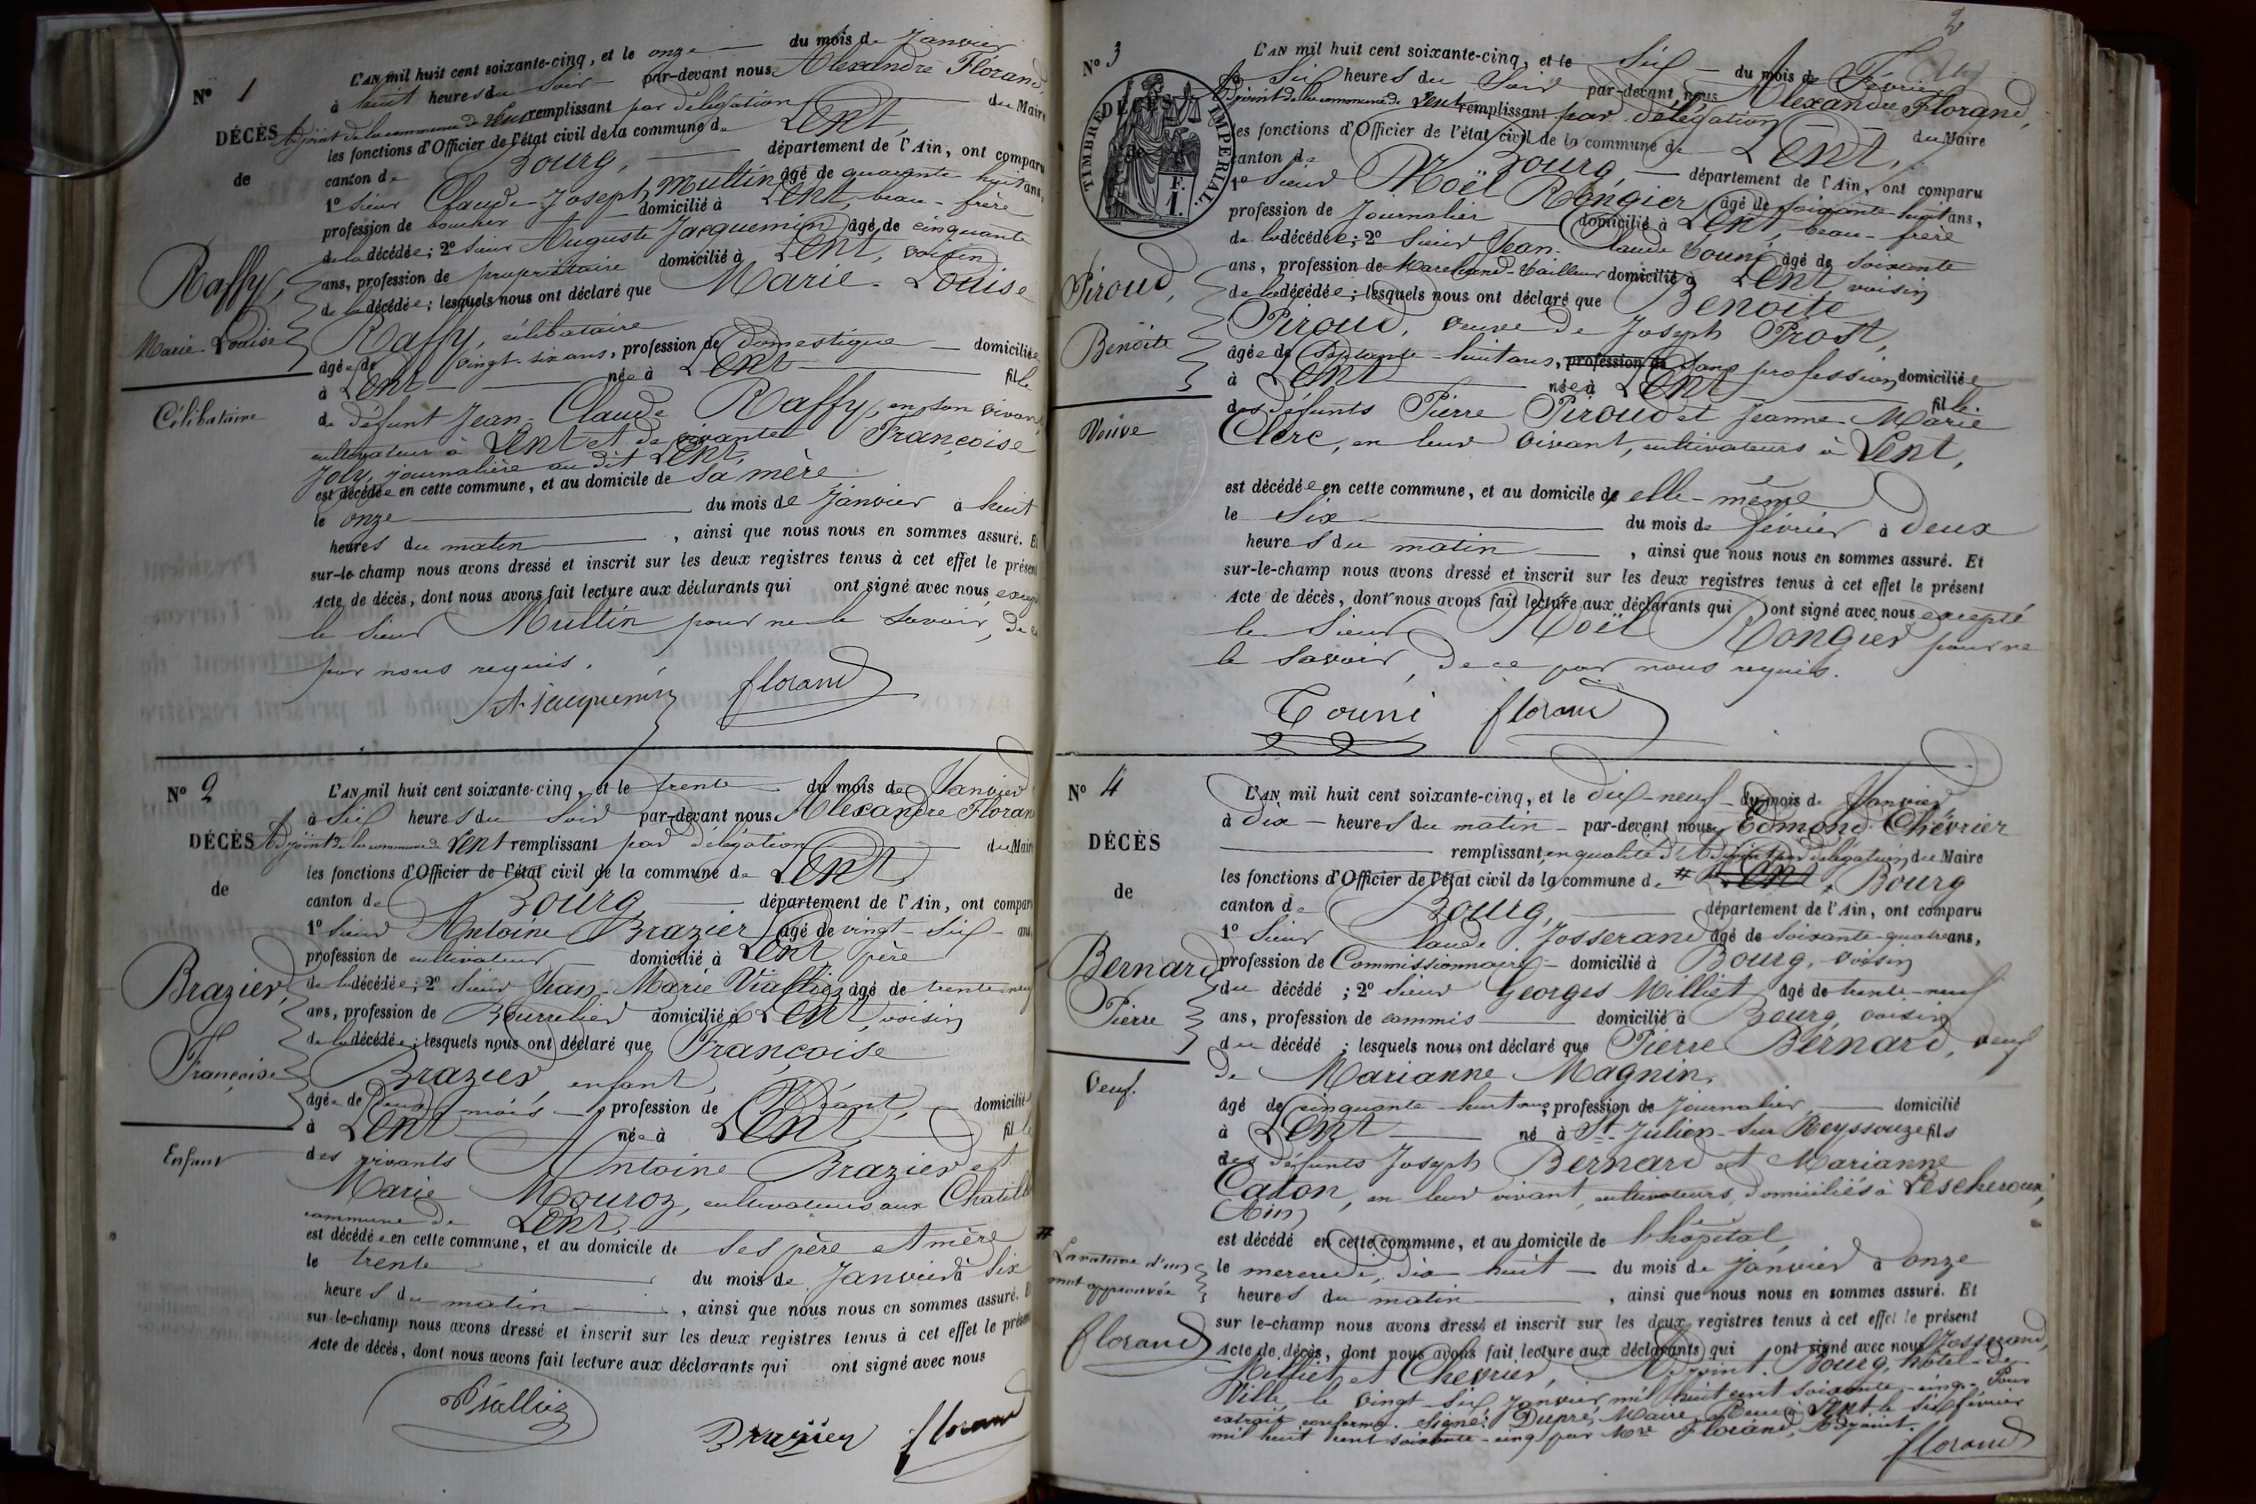 N° 1
DÉCÈS
de
Raffy,
Marie Louise
Célibataire
L'AN mil huit cent soixante-cinq, et le onze du mois de Janvier
à huit heures du Soir par-devant nous Alexandre Florand,
Adjoint de la commune de Lent remplissant par délégation du Maire
les fonctions d'Officier de l'état civil de la commune de Lent,
canton de Bourg, département de l'Ain, ont comparu
1° Sieur Claude Joseph Multin âgé de quarante huit ans,
profession de boucher domicilié à Lent, beau-frère
de la décédée; 2° Sieur Auguste Jacquemin âgé de cinquante
ans, profession de propriétaire domicilié à Lent, voisin
de la décédée; lesquels nous ont déclaré que Marie-Louise
Raffy, célibataire
âgée de vingt-six ans, profession de Domestique domiciliée
à Lent née à Lent fille
de défunt Jean-Claude Raffy, en son vivant
cultivateur à Lent et de vivante Françoise
Joly, journalière au dit Lent,
est décédée en cette commune, et au domicile de sa mère
le onze du mois de Janvier à huit
heures du matin, ainsi que nous nous en sommes assuré. Et
sur-le-champ nous avons dressé et inscrit sur les deux registres tenus à cet effet le présent
Acte de décès, dont nous avons fait lecture aux déclarants qui ont signé avec nous, excepté
le Sieur Multin pour ne le Savoir, de ce
par nous requis.
A Jacquemin florand
N° 2
DÉCÈS
de
Brazier,
Françoise
Enfant
L'AN mil huit cent soixante-cinq, et le trente du mois de Janvier
à Six heures du Soir par-devant nous Alexandre Florand
Adjoint de la commune de Lent remplissant par délégation du Maire
les fonctions d'Officier de l'état civil de la commune de Lent
canton de Bourg département de l'Ain, ont comparu
1° Sieur Antoine Brazier âgé de vingt-Six ans
profession de cultivateur domicilié à Lent père
de la décédée; 2° Sieur Jean-Marie Vialliez âgé de trente neuf
ans, profession de Bourrelier domicilié à Lent, voisin
de la décédée; lesquels nous ont déclaré que Françoise
Brazier, enfant,
âgée de Deux mois profession de Néant, domiciliée
à Lent née à Lent fille
des vivants Antoine Brazier et
Marie Mouroz, cultivateurs aux
commune de Lent,
est décédée en cette commune, et au domicile de Ses père et mère
le trente du mois de Janvier à Six
heures du matin, ainsi que nous nous en sommes assuré. Et
sur-le-champ nous avons dressé et inscrit sur les deux registres tenus à cet effet le présent
Acte de décès, dont nous avons fait lecture aux déclarants qui ont signé avec nous
Vialliez
Brazier florand
2
N° 3
TIMBRE IMPÉRIAL
DÉCÈS
de
F.
1.
Piroud,
Benoite
Veuve
L'AN mil huit cent soixante-cinq, et le Six du mois de Février
à Six heures du Soir par-devant nous Alexandre Florand,
Adjoint de la commune de Lent remplissant par délégation du Maire
les fonctions d'Officier de l'état civil de la commune de Lent,
canton de Bourg, département de l'Ain, ont comparu
1° Sieur Noël Rongier âgé de soixante huit ans,
profession de Journalier domicilié à Lent, beau-frère
de la décédée; 2° Sieur Jean-Claude Touni âgé de Soixante
ans, profession de Marchand-Tailleur domicilié à Lent voisin
de la décédée; lesquels nous ont déclaré que Benoite
Piroud, veuve de Joseph Prost,
âgée de Septante-huit ans, profession de Sans profession domiciliée
à Lent née à Lent fille
des défunts Pierre Piroud et Jeanne-Marie
Clerc, en leur vivant, cultivateurs à Lent,
est décédée en cette commune, et au domicile de elle-même
le Six du mois de février à deux
heures du matin, ainsi que nous nous en sommes assuré. Et
sur-le-champ nous avons dressé et inscrit sur les deux registres tenus à cet effet le présent
Acte de décès, dont nous avons fait lecture aux déclarants qui ont signé avec nous excepté
le Sieur Noël Rongier pour ne
le Savoir, de ce par nous requis.
Touni florand
N° 4
DÉCÈS
de
Bernard
Pierre
Veuf.
# La rature d'un
mot approuvée
florand
L'AN mil huit cent soixante-cinq, et le dix-neuf du mois de Janvier
à dix heures du matin par-devant nous Edmond Chevrier
remplissant en qualité d'Adjoint par délégation du Maire
les fonctions d'Officier de l'état civil de la commune de # Lent, Bourg
canton de Bourg, département de l'Ain, ont comparu
1° Sieur Claude Josserand âgé de soixante-quatre ans,
profession de Commissionnaire domicilié à Bourg, voisin
du décédé; 2° Sieur Georges Milliet âgé de trente-neuf
ans, profession de commis domicilié à Bourg, voisin
du décédé; lesquels nous ont déclaré que Pierre Bernard, veuf
de Marianne Magnin,
âgé de cinquante-huit ans, profession de Journalier domicilié
à Lent né à St Julien-Sur Reyssouze fils
des défunts Joseph Bernard et Marianne
Caton, en leur vivant, cultivateurs, domiciliés à Lescheroux,
(Ain)
est décédé en cette commune, et au domicile de l'hôpital,
le mercredi, dix huit du mois de Janvier à onze
heures du matin, ainsi que nous nous en sommes assuré. Et
sur le-champ nous avons dressé et inscrit sur les deux registres tenus à cet effet le présent
Acte de décès, dont nous avons fait lecture aux déclarants qui ont signé avec nous Josserand,
Milliet et Chevrier, Adjoint. Bourg, hôtel-de-
Ville, le vingt-Six Janvier mil huit cent soixante-cinq. Pour
extrait conforme. Signé: Dupré, Maire. Remis à Lent le Six février
mil huit cent soixante-cinq par Mr Florand, Adjoint.
florand